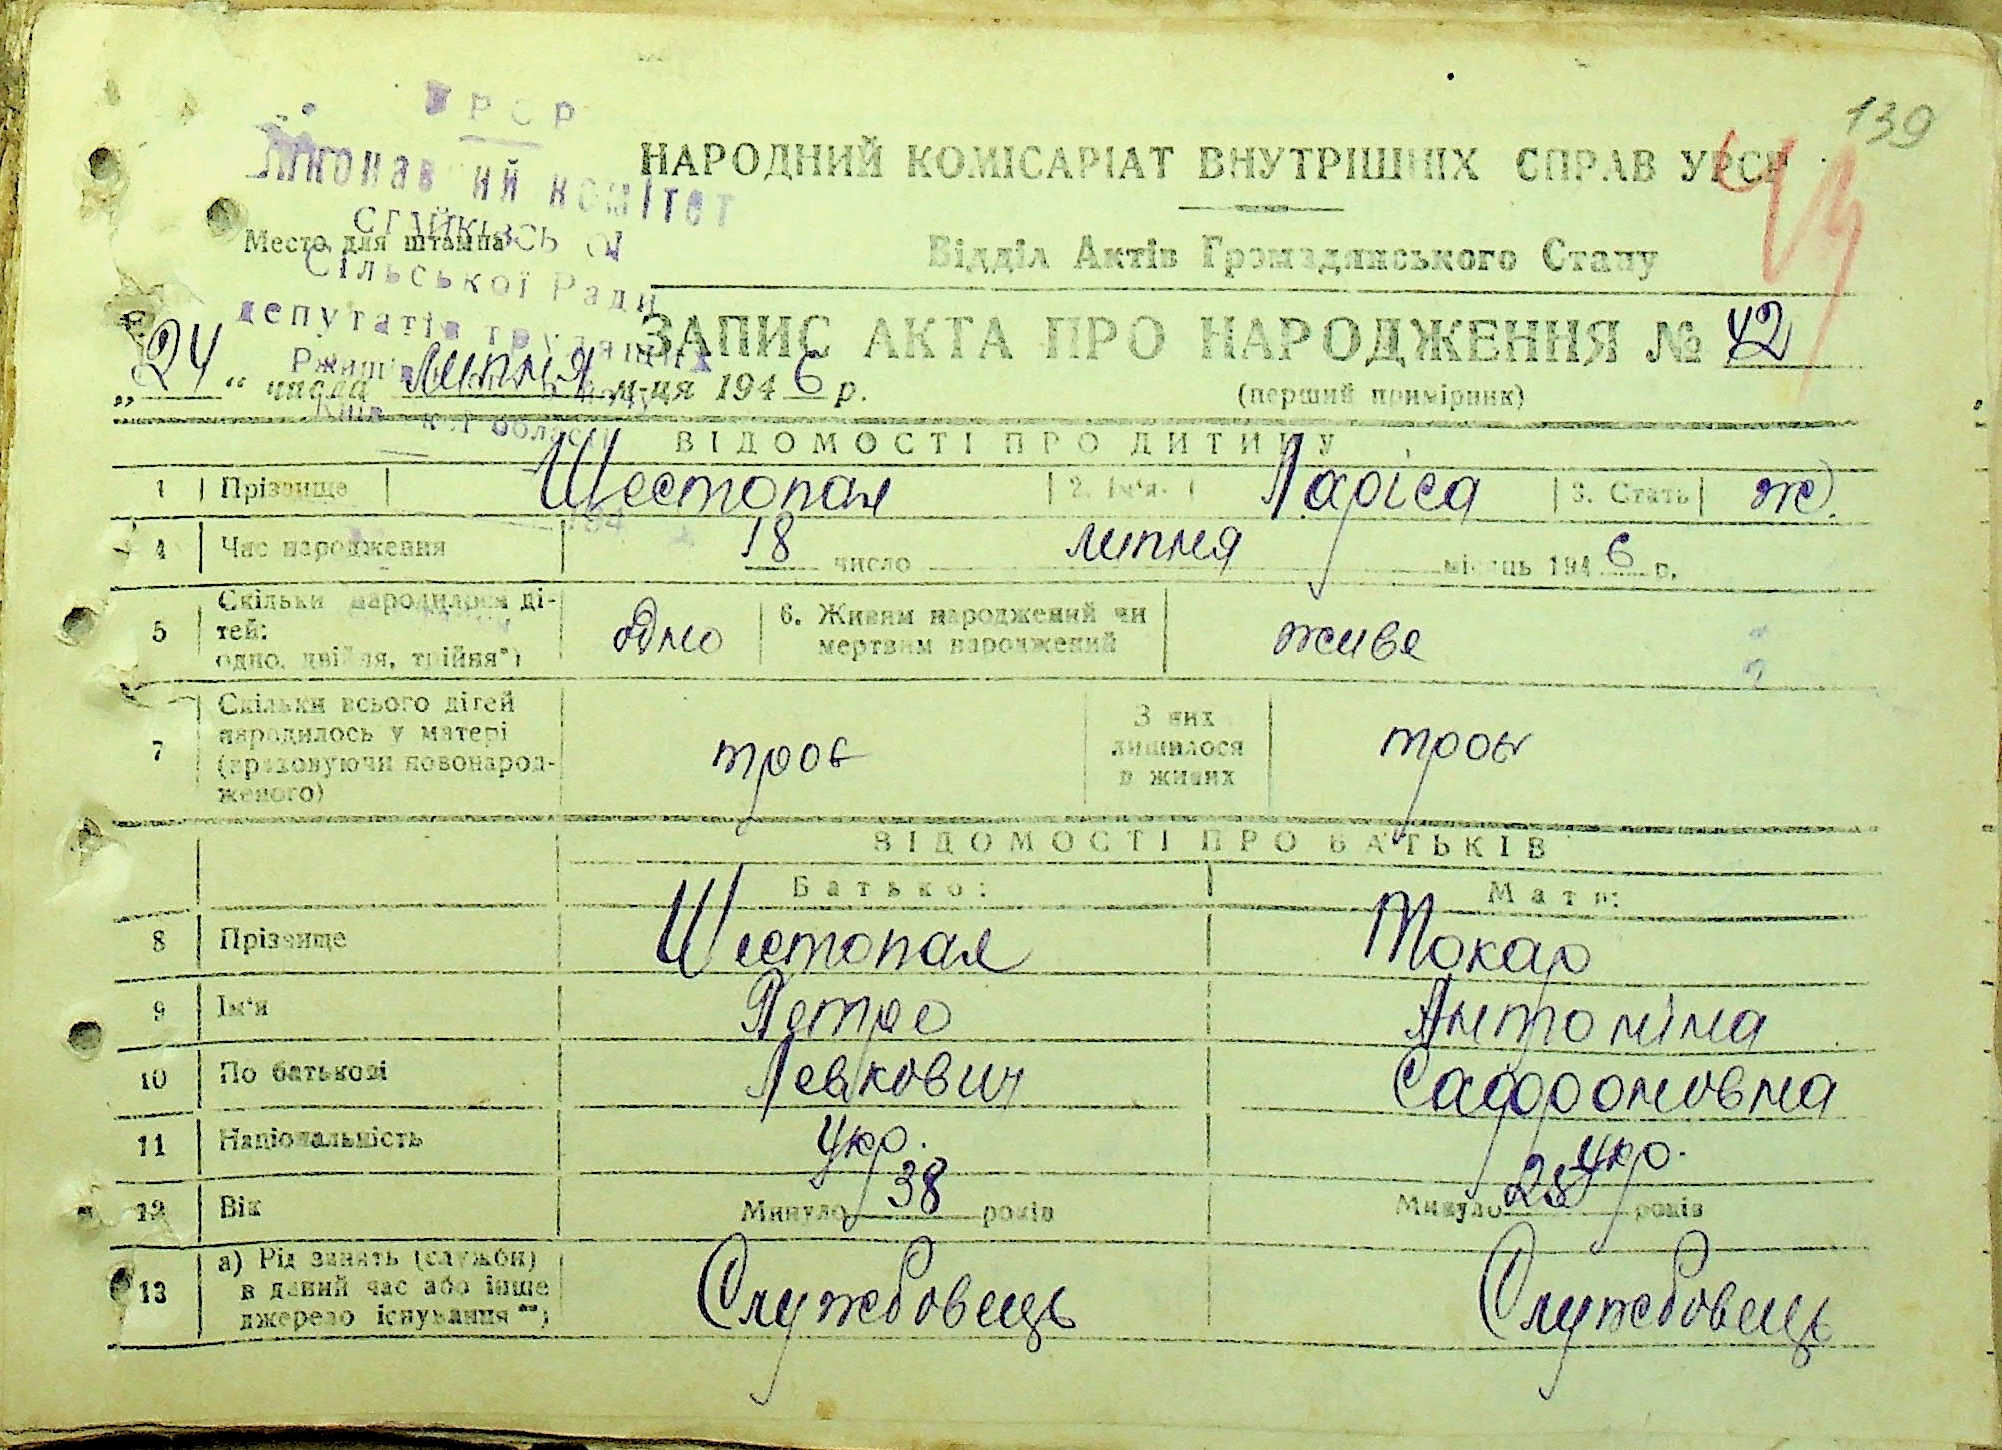 139
УРСР
Виконавчий комітет
Стайківської
Сільської Ради
депутатів трудящих
області
НАРОДНИЙ КОМІСАРІАТ ВНУТРІШНІХ СПРАВ УРСР
Место для штампа
Відділ Актів Громадянського Стану
ЗАПИС АКТА ПРО НАРОДЖЕННЯ № 42
„24“ числа липня м-ця 1946 р.
(перший примірник)
ВІДОМОСТІ ПРО ДИТИНУ
1 Прізвище Шестопал 2. Ім'я Ларіса 3. Стать ж.
4 Час народження 18 число липня місяць 1946 р.
5 Скільки народилося ді-
тей:
одно, двійня, трійня*) одно 6. Живим народжений чи
мертвим народжений живе
7 Скільки всього дітей
народилось у матері
(враховуючи новонарод-
женого) троє З них
лишилося
в живих троє
ВІДОМОСТІ ПРО БАТЬКІВ
Батько: Мати:
8 Прізвище Шестопал Токар
9 Ім'я Петро Антоніна
10 По батькові Левкович Сафроновна
11 Національність укр. укр.
12 Вік Минуло 38 років Минуло 28 років
13 а) Рід занять (служби)
в даний час або інше
джерело існування**) Службовець Службовець